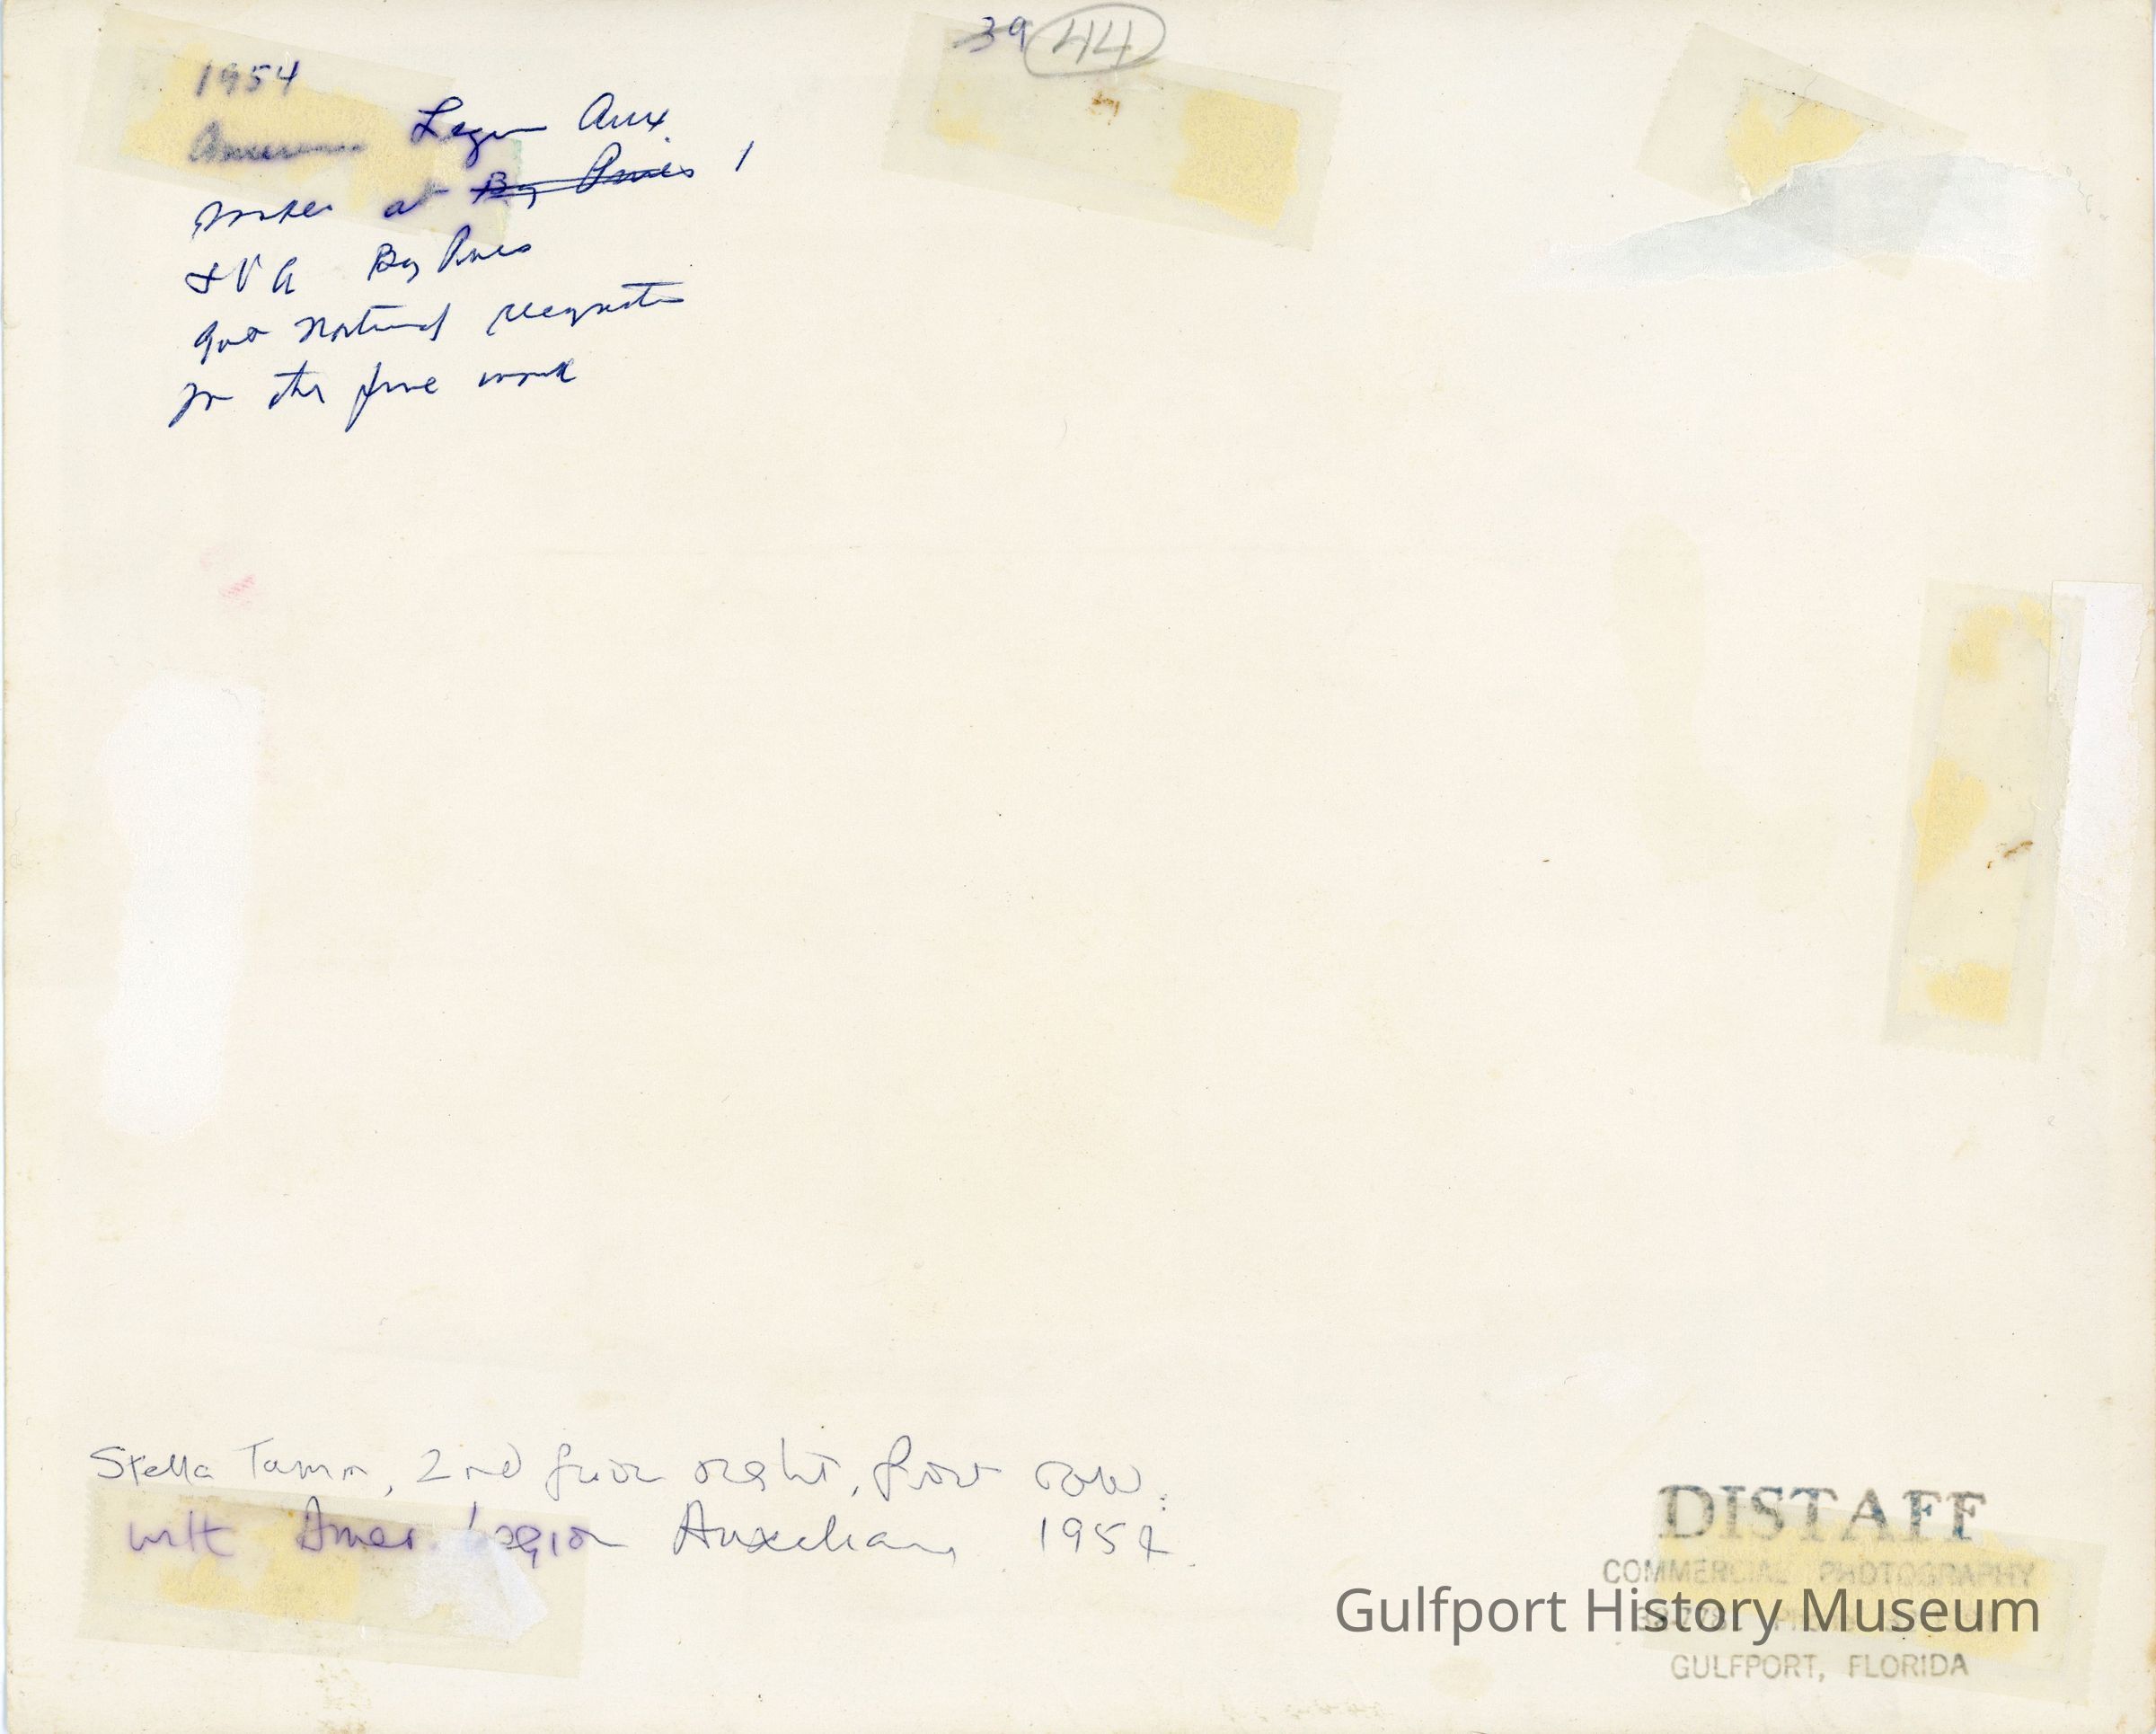 39 44
1954
American Legion Aux.
at Bay Pines
VA Bay Pines
got National recognition
for the fine work
Stella Tamm, 2nd from right, front row.
with Amer. Legion Auxiliary 1954.
DISTAFF
COMMERCIAL PHOTOGRAPHY
Gulfport History Museum
GULFPORT, FLORIDA